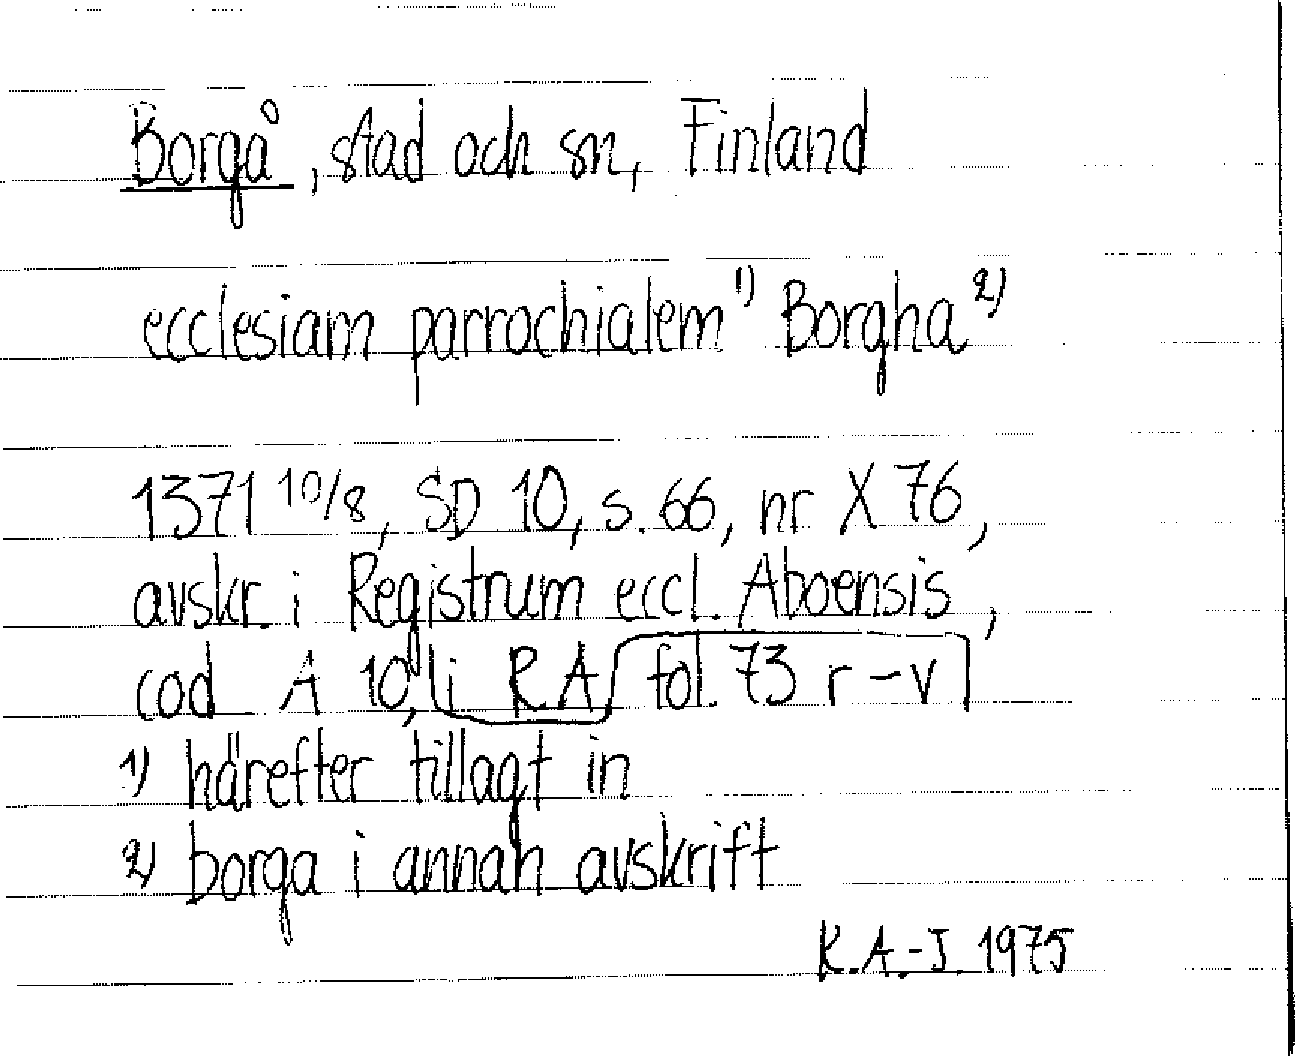 Borgå, stad och sn, Finland
ecclesiam parrochialem 1) Borgha 2)
1371 10/8, SD 10, s. 66, nr X 76,
avskr. i Registrum eccl. Aboensis,
cod A 10, i RA fol. 73 r-v
1) härefter tillagt in
2) borga i annan avskrift
K.A.-J. 1975